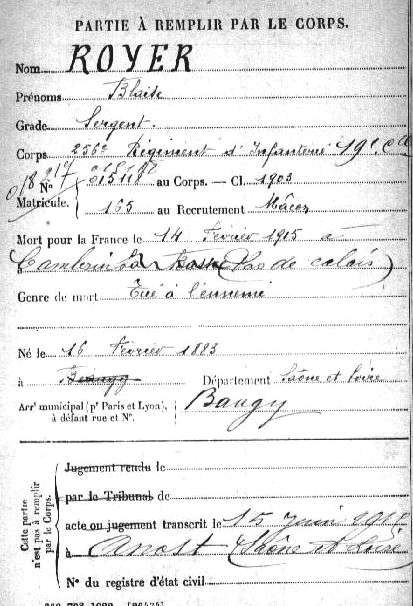 PARTIE À REMPLIR PAR LE CORPS.
Nom ROYER
Prénoms Blaise
Grade Sergent
Corps 256e Régiment d'Infanterie 19e Cie
018217
Nº au Corps. — Cl. 1903
Matricule. 165 au Recrutement Mâcon
Mort pour la France le 14 Février 1915 à
Cambrin La Bassée (Pas de calais)
Genre de mort Tué à l'ennemi
Né le 16 Février 1883
à Département Saône et Loire
Arrt municipal (pr Paris et Lyon), Baugy
à défaut rue et Nº.
Cette partie
n'est pas à remplir
par le Corps.
Jugement rendu le
par le Tribunal de
acte ou jugement transcrit le 15 Juin
à Anost (Saône et Loire)
Nº du registre d'état civil